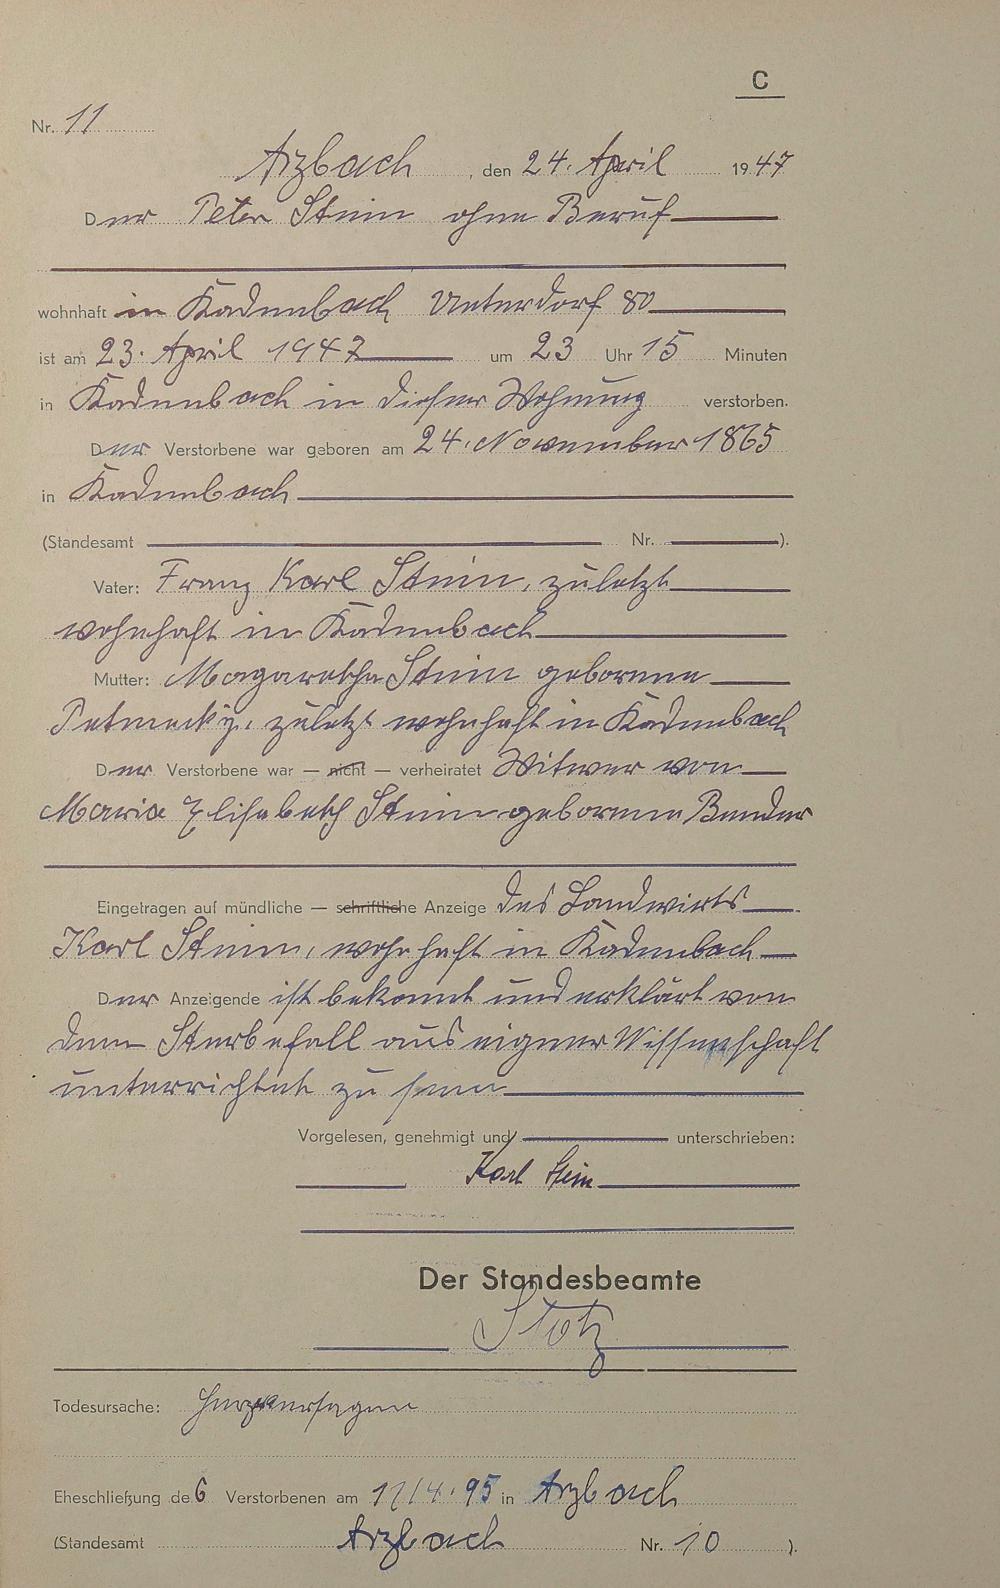 C
Nr. 11
Arzbach, den 24. April 1947
Der Peter Stein ohne Beruf
wohnhaft in Kadenbach Unterdorf 80
ist am 23. April 1947 um 23 Uhr 15 Minuten
in Kadenbach in dieser Wohnung verstorben.
Der Verstorbene war geboren am 24. November 1865
in Kadenbach
(Standesamt Nr. ).
Vater: Franz Karl Stein, zuletzt
wohnhaft in Kadenbach
Mutter: Magaretha Stein geborene
zuletzt wohnhaft in Kadenbach
Der Verstorbene war — nicht — verheiratet Witwer von
Maria Elisabeth Stein geborene Bender
Eingetragen auf mündliche — schriftliche Anzeige des Landwirts
Karl Stein, wohnhaft in Kadenbach
Der Anzeigende ist bekannt und erklärt von
dem Sterbefall aus eigner Wissenschaft
unterrichtet zu sein
Vorgelesen, genehmigt und unterschrieben:
Karl Stein
Der Standesbeamte
Stotz
Todesursache: Herzversagen
Eheschließung des Verstorbenen am 17/4.95 in Arzbach
(Standesamt Arzbach Nr. 10 ).